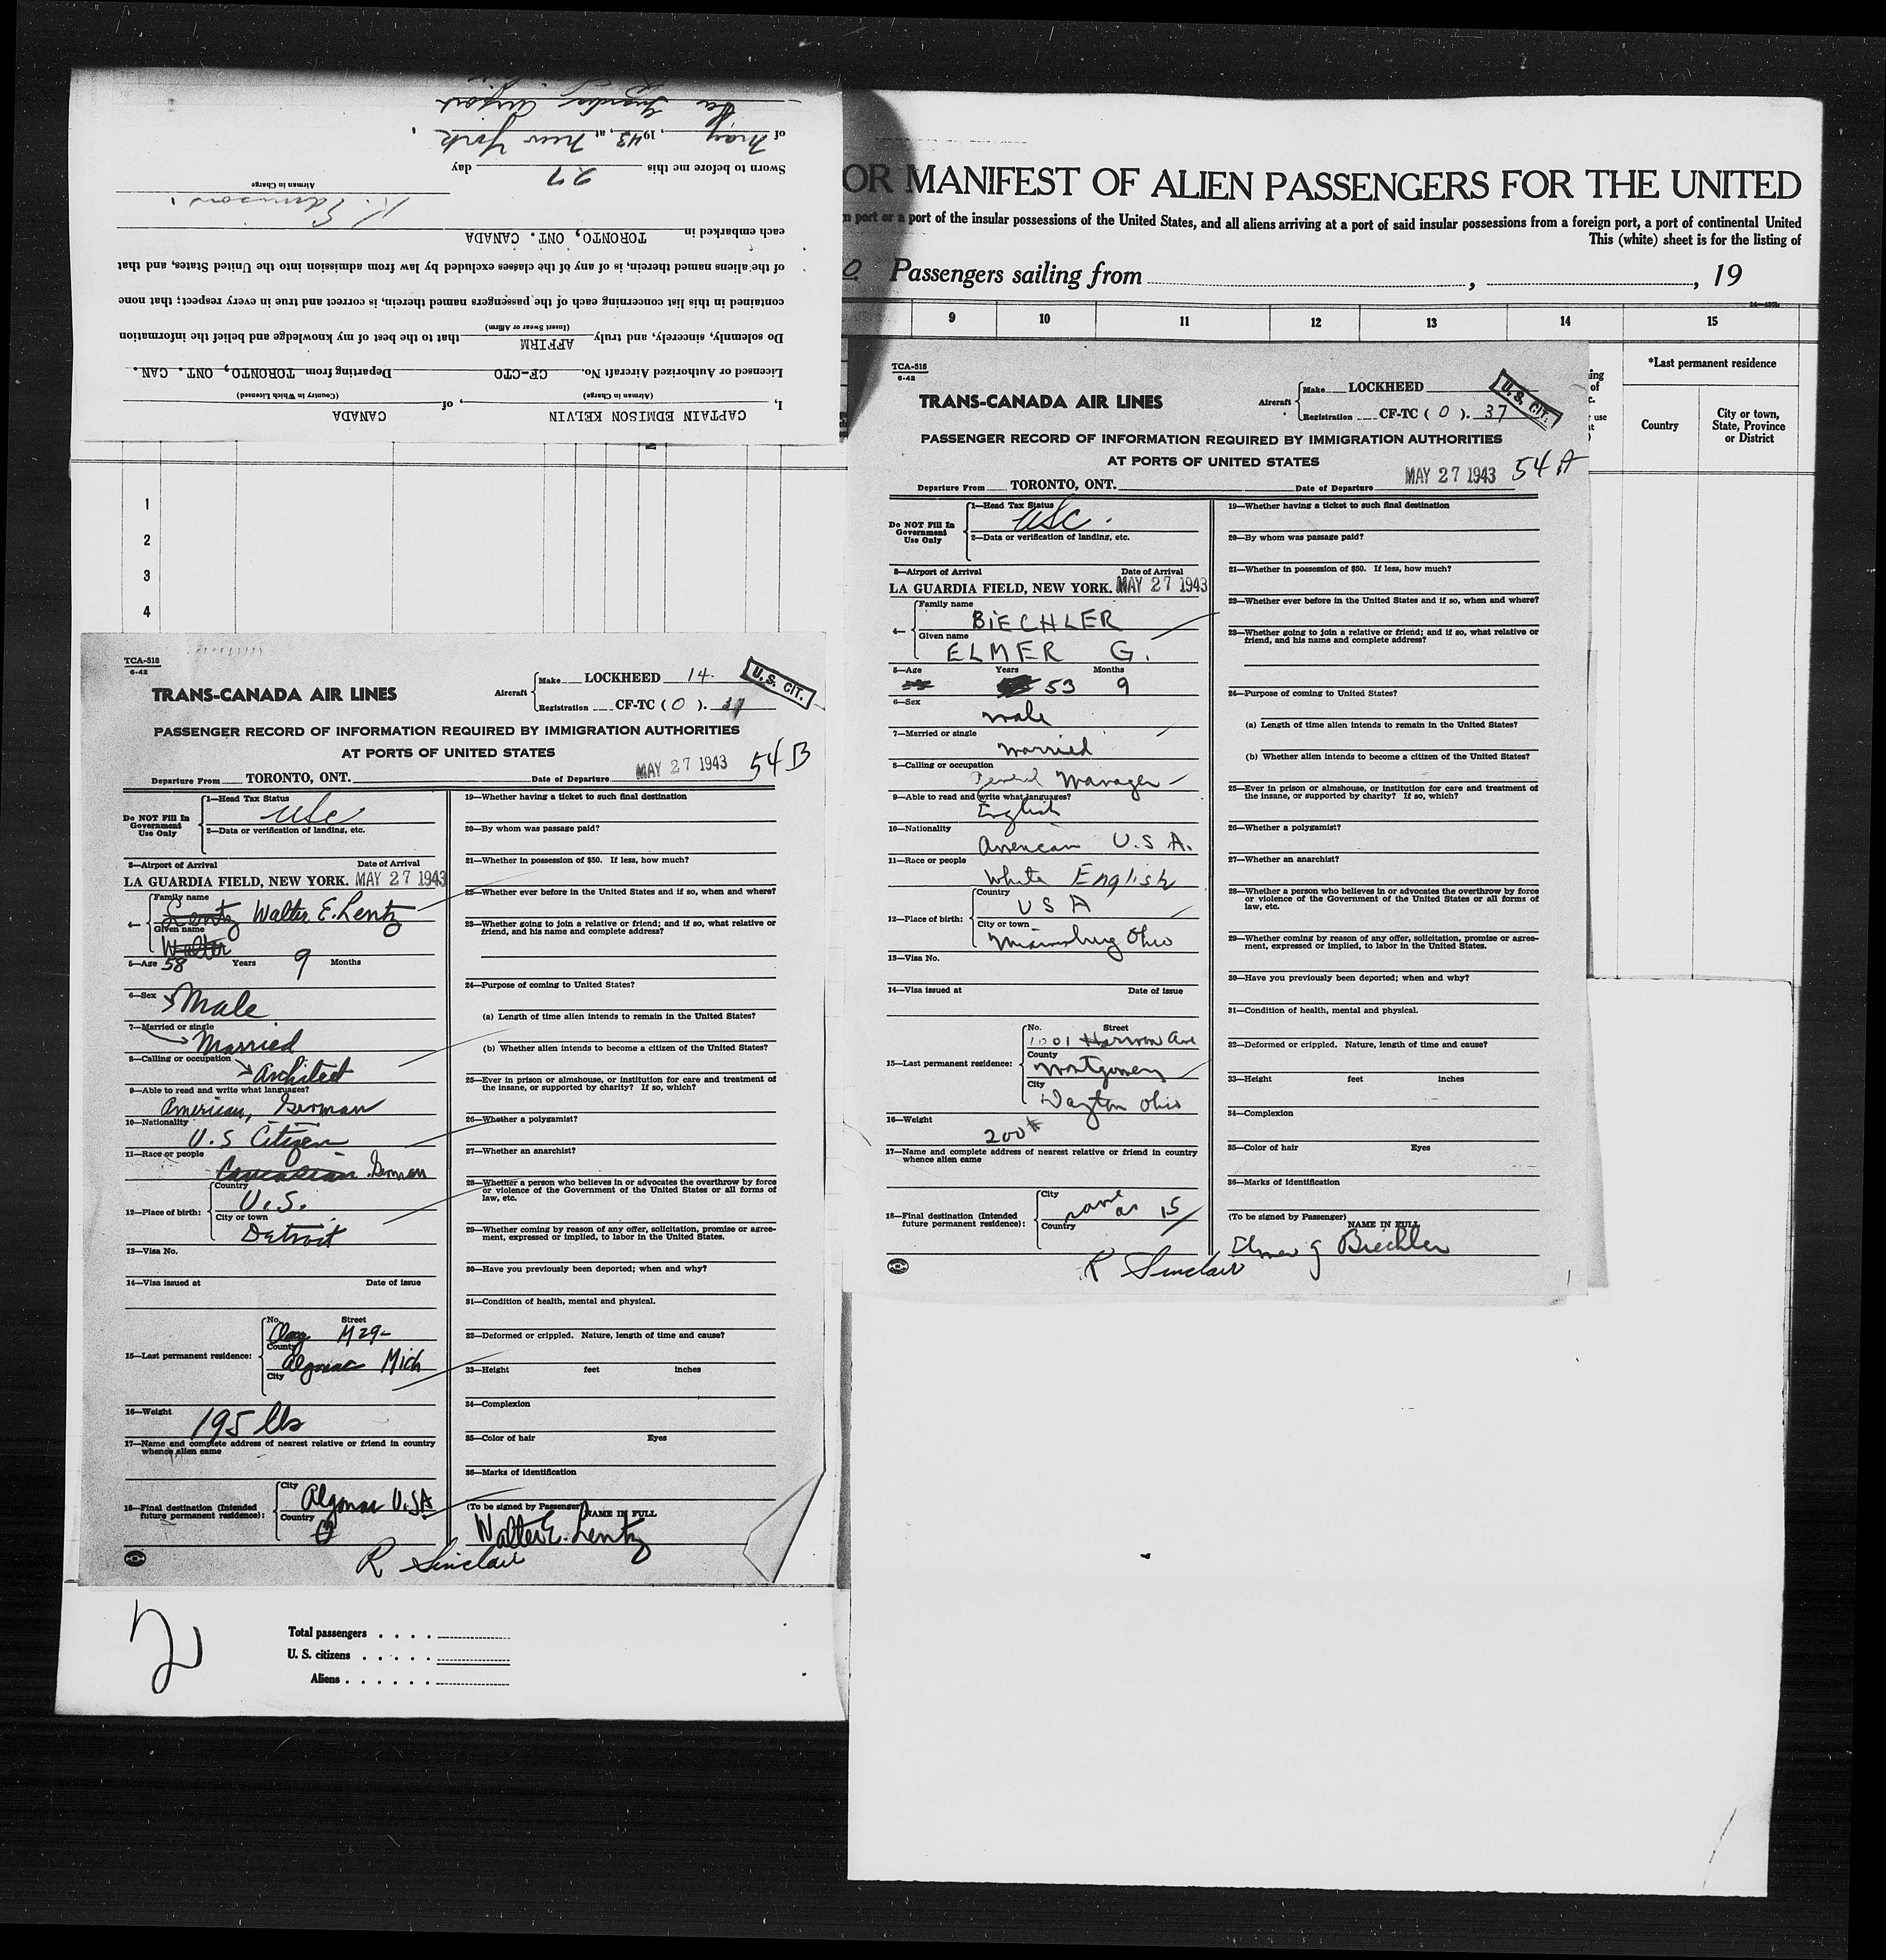 I, CAPTAIN EDMISON KELVIN , of CANADA
(Airman in Charge) (Country in Which Licensed)
Licensed or Authorized Aircraft No. CF-CTO Departing from TORONTO, ONT. CAN.
Do solemnly, sincerely, and truly AFFIRM that to the best of my knowledge and belief the information
(Insert Swear or Affirm)
contained in this list concerning each of the passengers named therein, is correct and true in every respect; that none
of the aliens named therein, is of any of the classes excluded by law from admission into the United States, and that
each embarked in TORONTO, ONT. CANADA
K. Edmison.
Airman in Charge
Sworn to before me this 27 day
of May, 1943, at New York
La Guardia Airport
1
2
3
4
TCA-518
6-42
TRANS-CANADA AIR LINES
Aircraft
Make LOCKHEED 14.
Registration CF-TC (O). 37
U.S. CIT.
PASSENGER RECORD OF INFORMATION REQUIRED BY IMMIGRATION AUTHORITIES
AT PORTS OF UNITED STATES
54 B
Departure From TORONTO, ONT. Date of Departure MAY 27 1943
Do NOT Fill In
Government
Use Only
1—Head Tax Status
USC
2—Data or verification of landing, etc.
3—Airport of Arrival Date of Arrival
LA GUARDIA FIELD, NEW YORK. MAY 27 1943
4—
Family name
Lentz Walter E. Lentz
Given name
Walter
5—Age 58 Years 9 Months
6—Sex Male
7—Married or single
Married
8—Calling or occupation
Architect
9—Able to read and write what languages?
American, German
10—Nationality
U.S Citizen
11—Race or people
Caucasian German
12—Place of birth:
Country
U.S.
City or town
Detroit
13—Visa No.
14—Visa issued at Date of issue
15—Last permanent residence:
No. Street
Clay M29-
County
Algonac Mich
City
16—Weight
195 lbs
17—Name and complete address of nearest relative or friend in country
whence alien came
18—Final destination (Intended
future permanent residence):
City
Algonac U.SA
Country
R Sinclair
19—Whether having a ticket to such final destination
20—By whom was passage paid?
21—Whether in possession of $50. If less, how much?
22—Whether ever before in the United States and if so, when and where?
23—Whether going to join a relative or friend; and if so, what relative or
friend, and his name and complete address?
24—Purpose of coming to United States?
(a) Length of time alien intends to remain in the United States?
(b) Whether alien intends to become a citizen of the United States?
25—Ever in prison or almshouse, or institution for care and treatment of
the insane, or supported by charity? If so, which?
26—Whether a polygamist?
27—Whether an anarchist?
28—Whether a person who believes in or advocates the overthrow by force
or violence of the Government of the United States or all forms of
law, etc.
29—Whether coming by reason of any offer, solicitation, promise or agree-
ment, expressed or implied, to labor in the United States.
30—Have you previously been deported; when and why?
31—Condition of health, mental and physical.
32—Deformed or crippled. Nature, length of time and cause?
33—Height feet inches
34—Complexion
35—Color of hair Eyes
36—Marks of identification
(To be signed by Passenger)
NAME IN FULL
Walter E. Lentz
2
Total passengers . . . .
U. S. citizens . . . . .
Aliens . . . . . .
OR MANIFEST OF ALIEN PASSENGERS FOR THE UNITED
n port or a port of the insular possessions of the United States, and all aliens arriving at a port of said insular possessions from a foreign port, a port of continental United
This (white) sheet is for the listing of
Passengers sailing from , , 19
9 10 11 12 13 14 15
*Last permanent residence
Country
City or town,
State, Province
or District
TCA-518
6-42
TRANS-CANADA AIR LINES
Aircraft
Make LOCKHEED
Registration CF-TC (O). 37
U.S. CIT.
PASSENGER RECORD OF INFORMATION REQUIRED BY IMMIGRATION AUTHORITIES
AT PORTS OF UNITED STATES
54 A
Departure From TORONTO, ONT. Date of Departure MAY 27 1943
Do NOT Fill In
Government
Use Only
1—Head Tax Status
USC.
2—Data or verification of landing, etc.
3—Airport of Arrival Date of Arrival
LA GUARDIA FIELD, NEW YORK. MAY 27 1943
4—
Family name
BIECHLER
Given name
ELMER G.
5—Age Years Months
53 9
6—Sex
male
7—Married or single
married
8—Calling or occupation
General Manager
9—Able to read and write what languages?
English
10—Nationality
American U.S A.
11—Race or people
White English
12—Place of birth:
Country
U S A
City or town
Miamisburg Ohio
13—Visa No.
14—Visa issued at Date of issue
15—Last permanent residence:
No. Street
1001 Harmon Ave
County
Montgomery
City
Dayton Ohio
16—Weight
200#
17—Name and complete address of nearest relative or friend in country
whence alien came
18—Final destination (Intended
future permanent residence):
City
same as 15
Country
R Sinclair
19—Whether having a ticket to such final destination
20—By whom was passage paid?
21—Whether in possession of $50. If less, how much?
22—Whether ever before in the United States and if so, when and where?
23—Whether going to join a relative or friend; and if so, what relative or
friend, and his name and complete address?
24—Purpose of coming to United States?
(a) Length of time alien intends to remain in the United States?
(b) Whether alien intends to become a citizen of the United States?
25—Ever in prison or almshouse, or institution for care and treatment of
the insane, or supported by charity? If so, which?
26—Whether a polygamist?
27—Whether an anarchist?
28—Whether a person who believes in or advocates the overthrow by force
or violence of the Government of the United States or all forms of
law, etc.
29—Whether coming by reason of any offer, solicitation, promise or agree-
ment, expressed or implied, to labor in the United States.
30—Have you previously been deported; when and why?
31—Condition of health, mental and physical.
32—Deformed or crippled. Nature, length of time and cause?
33—Height feet inches
34—Complexion
35—Color of hair Eyes
36—Marks of identification
(To be signed by Passenger)
NAME IN FULL
Elmer G Biechler